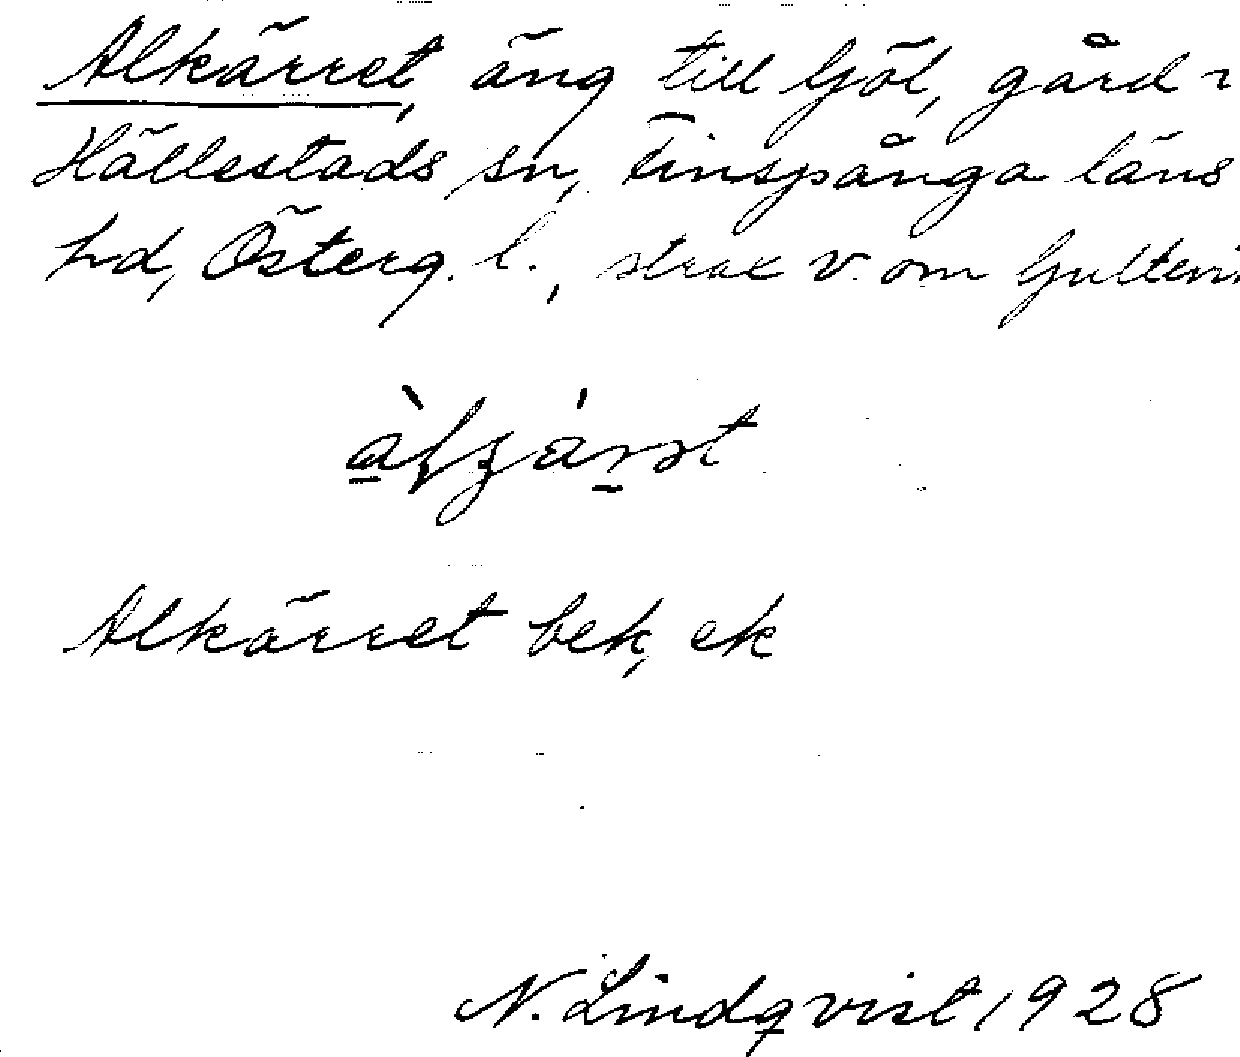 Alkärret, äng till Ljöl, gård
Hällestads sn, Finspånga läns
hd, Österg. l., strax v. om
Alkärret bek, ek
N. Lindqvist 1928